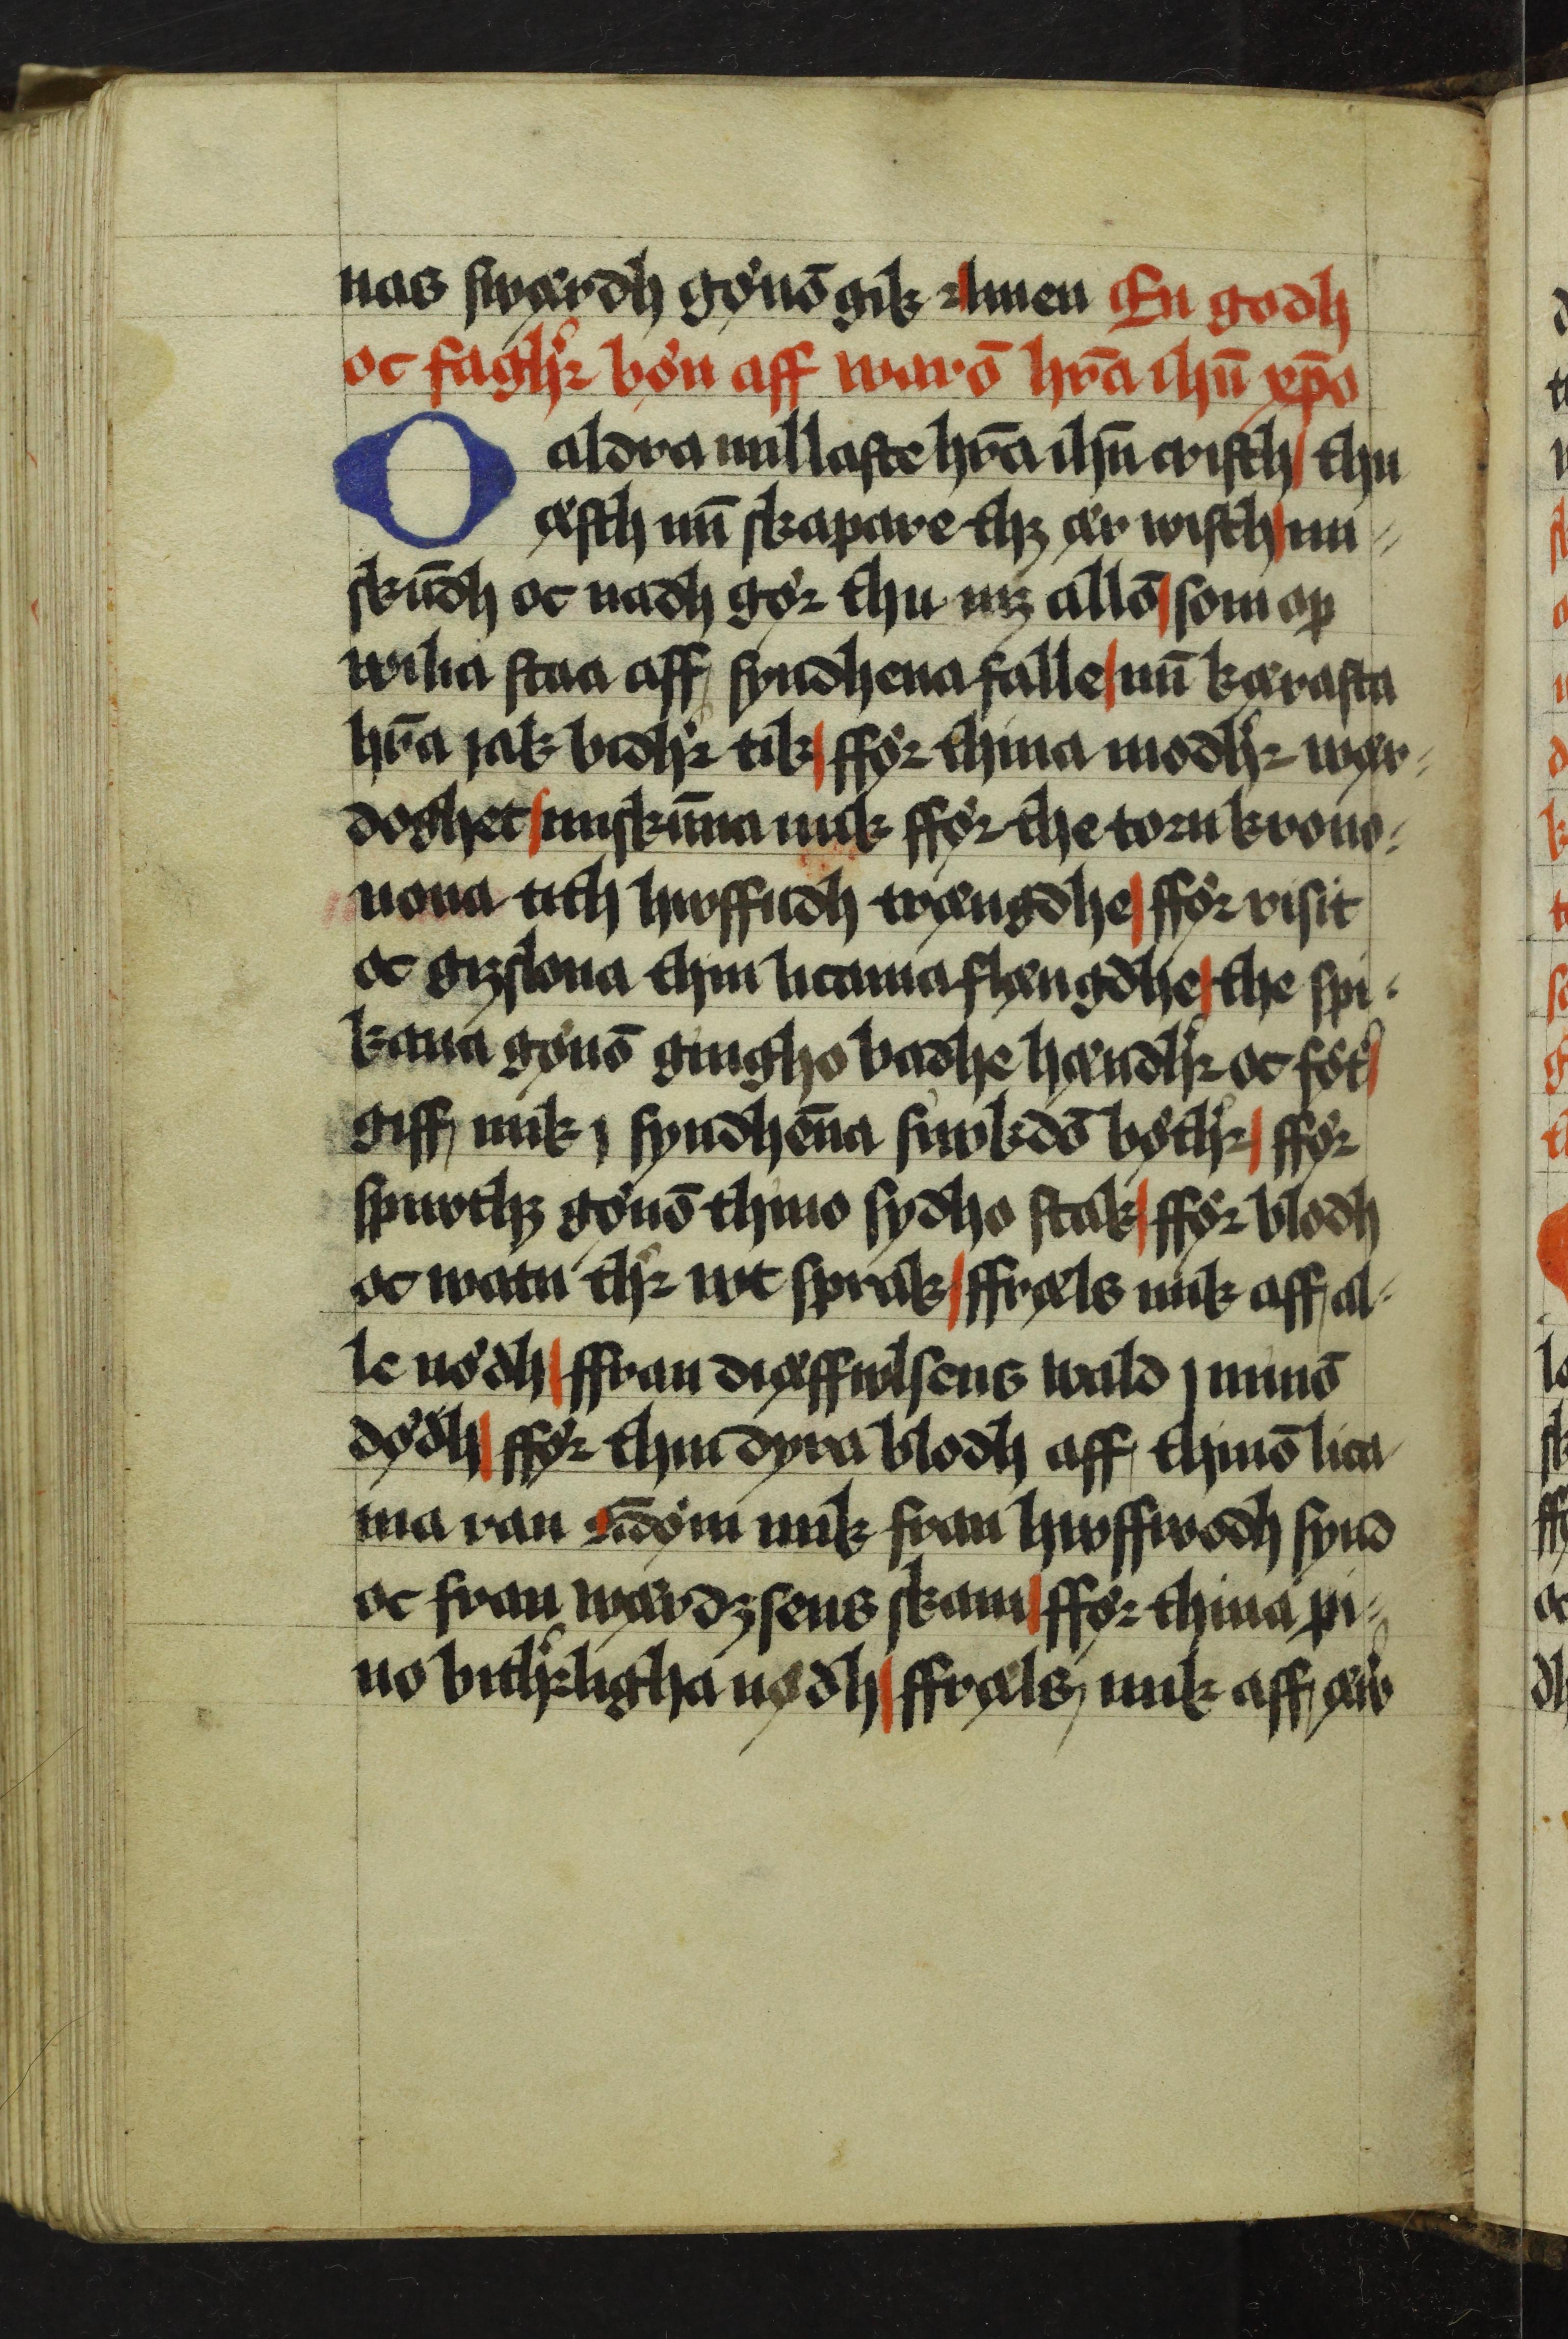 nas swærdh gønō gik Amen En godh
oc faghr bøn aff warō hr̄a ihū xp̄o
O aldra millaste hr̄a ihū cristh / thu
æsth mī skapare thꝫ ær wisth / mi=
skūdh oc nadh gør thu mꝫ allō / som op
wilia staa aff syndhena falle / mī kærasta
hr̄a jak bidhr tik / ffør thina modhr wær=
doghet / miskūna mik ffør the torn krono=
nona tith hwffudh trængdhe / ffør risit
oc gizslona thin licama flængdhe / the spi=
kana gønō gingho badhe hændhr oc føt /
giff mik j syndhēna siwkdō bøthr / ffør
spiwthꝫ gønō thino sydho stak / ffør blodh
oc watn thr wt sprak / ffræls mik aff al=
le nødh / ffran diæffwlsens wald j minō
dødh / ffør thin dyra blodh aff thinō lica
ma ran vndøm mik fran hwffwodh synd
oc fran wærdzsens skam / ffør thina pi=
no bithrligha nødh / ffræls mik aff æw